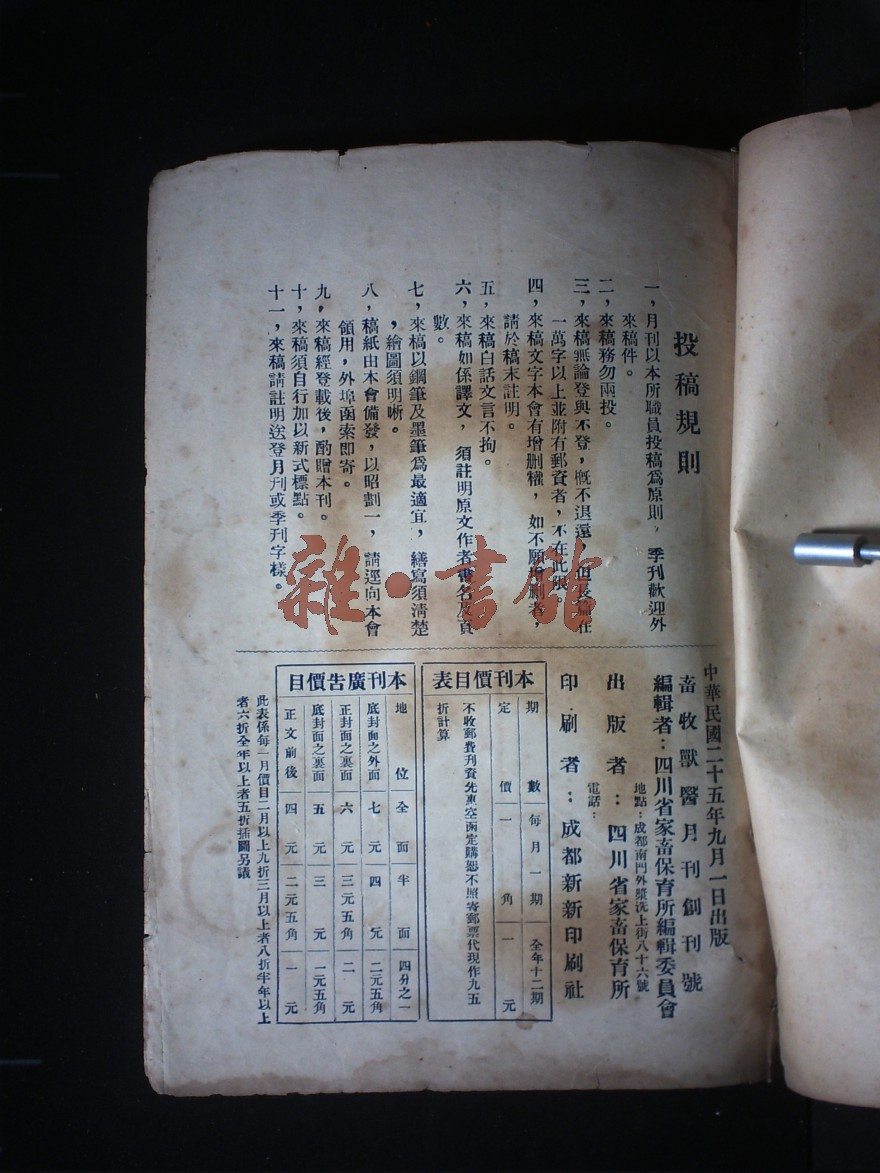 投稿規則
一，月刊以本所職員投稿爲原則，季刊歡迎外
來稿件。
二，來稿務勿兩投。
三，來稿無論登與不登，概不退還，但長篇在
一萬字以上並附有郵資者，不在此限。
四，來稿文字本會有增删權，如不願增删者，
請於稿末註明。
五，來稿白話文言不拘。
六，來稿如係譯文，須註明原文作者書名及頁
數。
七，來稿以鋼筆及墨筆爲最適宜，繕寫須清楚
，繪圖須明晰。
八，稿紙由本會備發，以昭劃一，請逕向本會
領用，外埠函索即寄。
九，來稿經登載後，酌贈本刊。
十，來稿須自行加以新式標點。
十一，來稿請註明送登月刊或季刊字樣。
中華民國二十五年九月一日出版
畜牧獸醫月刊創刊號
編輯者：四川省家畜保育所編輯委員會
地點：成都南門外漿洗上街八十六號
出版者：四川省家畜保育所
電話：
印刷者：成都新新印刷社
本刊價目表
期數 每月一期 全年十二期
定價 一角 一元
不收郵費刊資先惠空函定購恕不照寄郵票代現作九五
折計算
本刊廣告價目
地位 全面 半面 四分之一
底封面之外面 七元 四元 二元五角
正封面之裏面 六元 三元五角 二元
底封面之裏面 五元 三元 一元五角
正文前後 四元 二元五角 一元
此表係每一月價目二月以上九折三月以上者八折半年以上
者六折全年以上者五折插圖另議
雜·書館